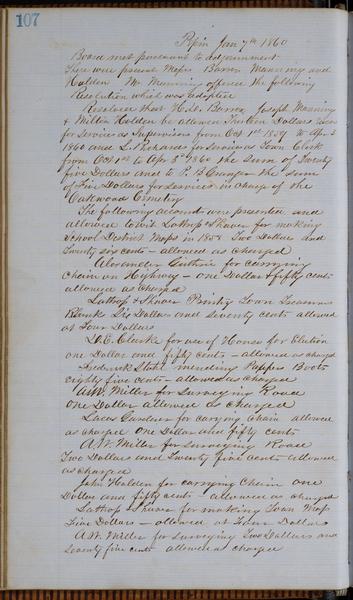 107
Pepin Jan 7th 1860
Board met pursuant to adjournment
There were present Messrs Barren Manning and
Holden Mr Manning offered the following
Resolution which was adopted
Resolved that Joseph Manning
& Milton Holden be allowed Dollars each
for services as Supervisors from Oct 1st 1859 to Apr 3
1860 and L Richards for services as Town Clerk
from Oct 1st to Apr 3d 1860 the sum of Twenty
five Dollars and to P. B. the sum
of Five Dollars for services in charge of the
Oakwood Cemetery
The following accounts were presented and
allowed to wit Lathrop & Shaver for making
School District Maps in 1858 Two Dollars and
Twenty six cents – allowed as charged
Alexander Guthrie for carrying
Chain on Highway – one Dollar & fifty cents
allowed as charged
Lathrop & Shaver Printing Town Treasurers
Blanks Six Dollars and seventy cents allowed
at Four Dollars
D. E. Clarke for use of House for Election
one Dollar and fifty cents – allowed as charged
Frederick Stahl mending Boots
eighty five cents – allowed as charged
A.W. Miller for Surveying Road
One Dollar allowed as charged
Lucas for carrying chain allowed
as charged One Dollar and fifty cents
A. W. Miller for surveying Road
Two Dollars and Twenty five cents allowed
as charged
John Holden for carrying Chain one
Dollar and fifty cents – allowed as charged
Lathrop & Shaver for making Town Map
Five Dollars – allowed at Four Dollars
A. W. Miller for surveying Two Dollars and
Seventy five cents allowed as charged